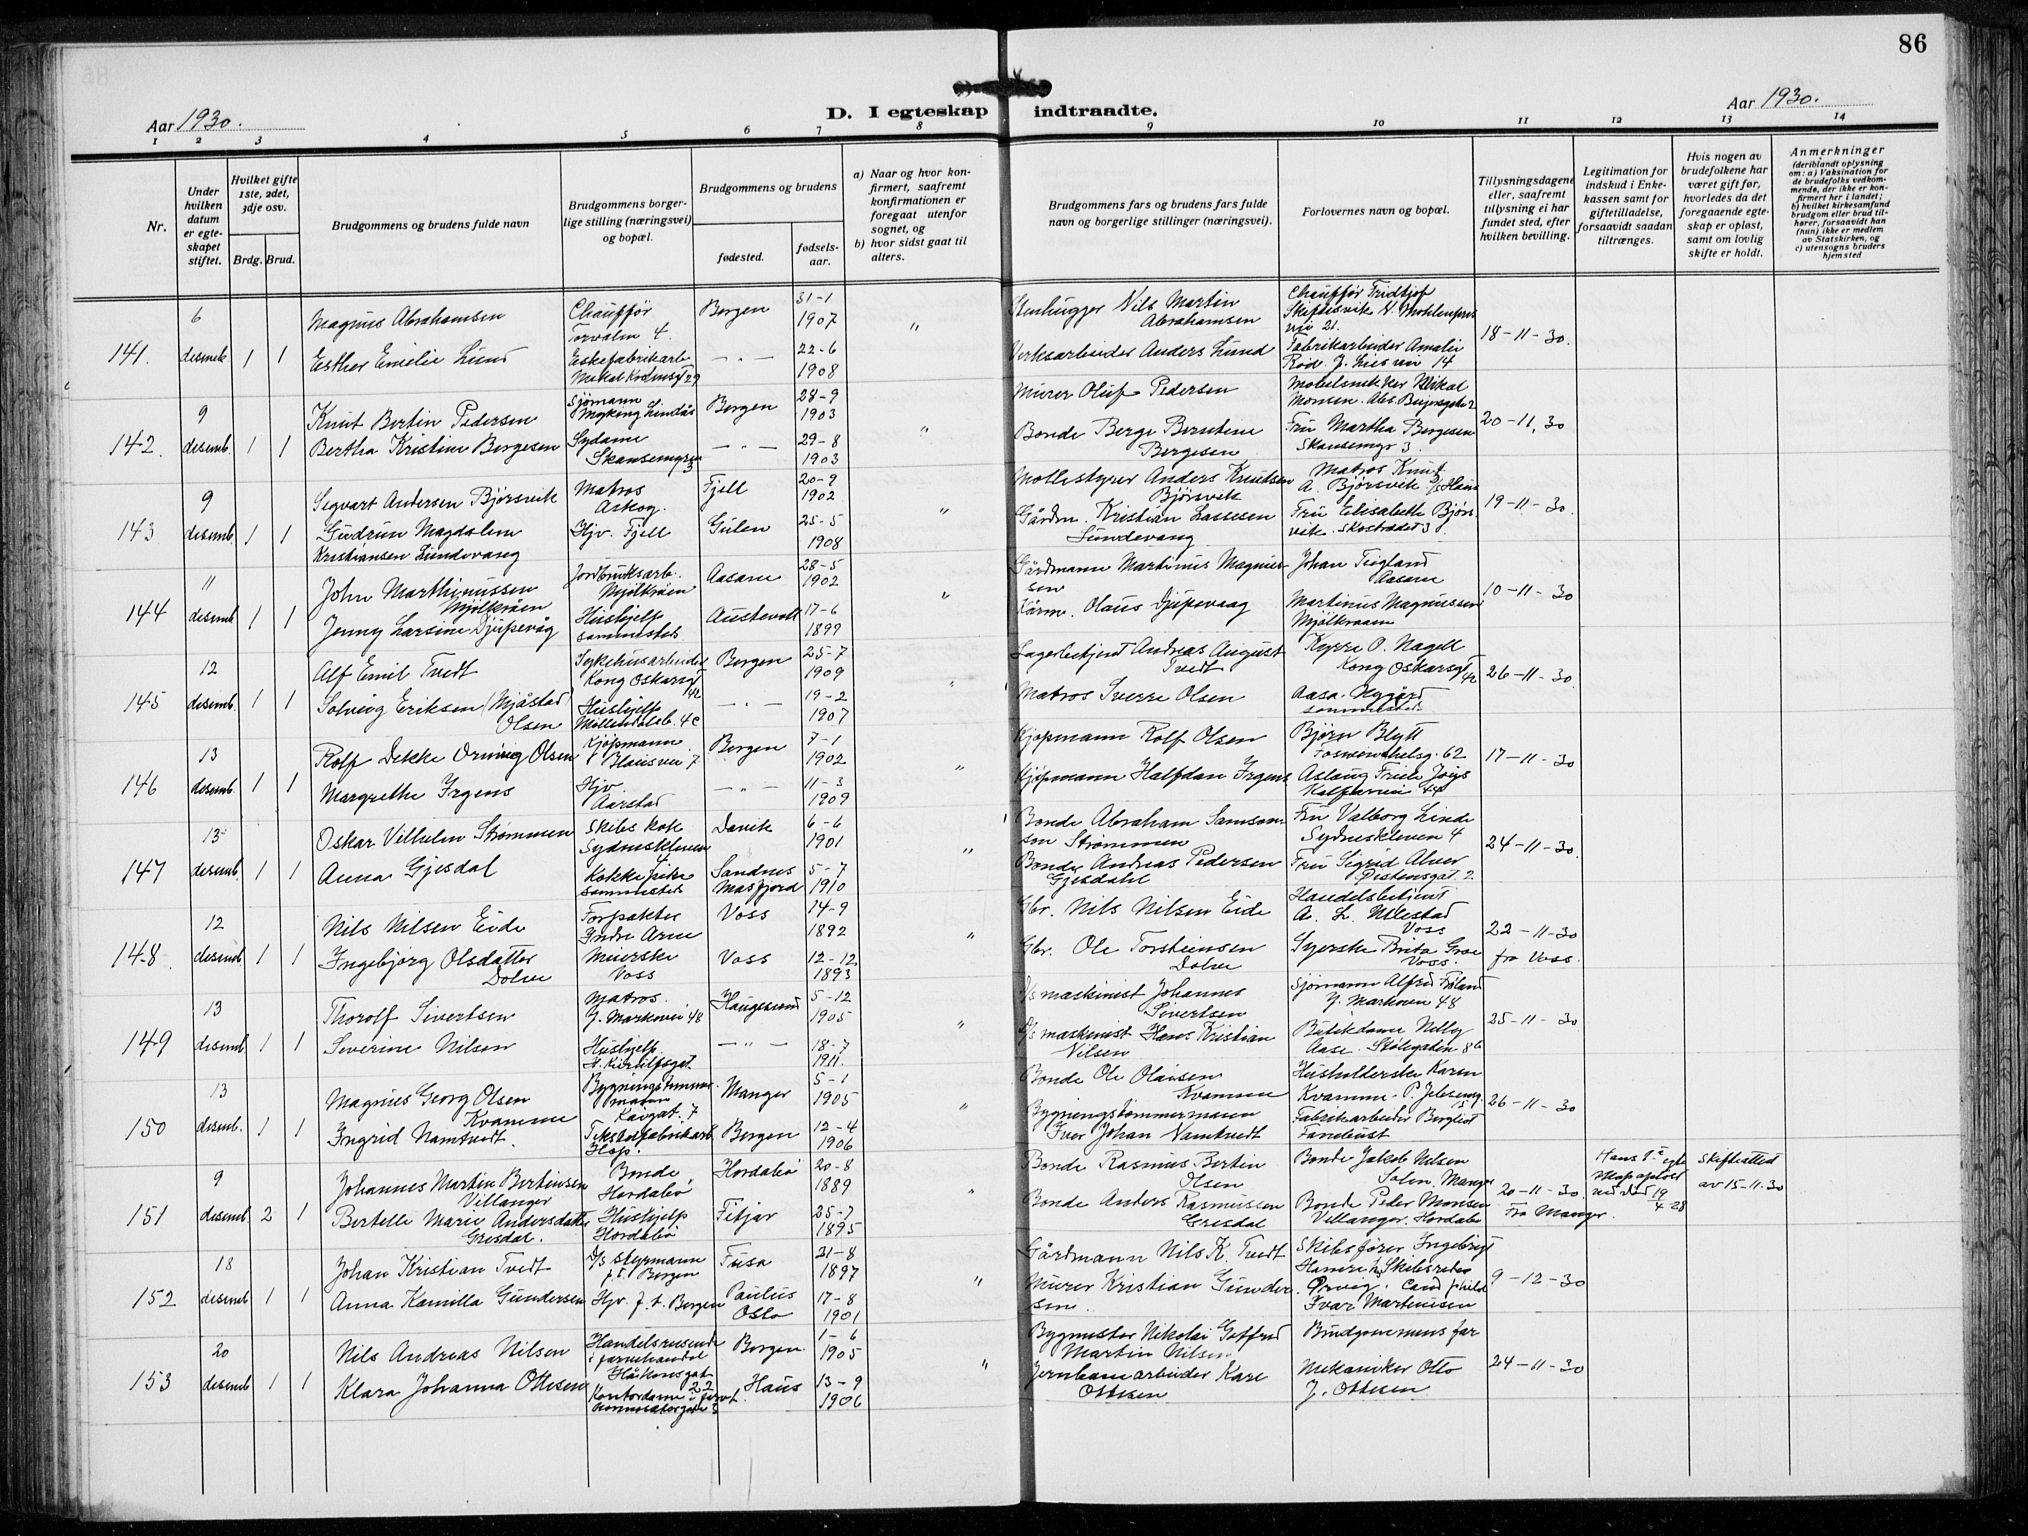 86
Aar 1930.
D. I egteskap indtraadte.
Aar 1930.
1 2 3 4 5 6 7 8 9 10 11 12 13 14
Nr.
Under hvilken datum er egteskapet stiftet.
Hvilket gifte 1ste, 2det, 3dje osv.
Brdg. Brud.
Brudgommens og brudens fulde navn
Brudgommens borgerlige stilling (næringsvei) og bopæl.
Brudgommens og brudens
fødested. fødselsaar.
a) Naar og hvor konfirmert, saafremt konfirmationen er foregaat utenfor sognet, og
b) hvor sidst gaat til alters.
Brudgommens fars og brudens fars fulde navn og borgerlige stillinger (næringsvei).
Forlovernes navn og bopæl.
Tillysningsdagene eller, saafremt tillysning ei har fundet sted, efter hvilken bevilling.
Legitimation for indskud i Enkekassen samt for giftetilladelse, forsaavidt saadan tiltrænges.
Hvis nogen av brudefolkene har været gift før, hvorledes da det foregaaende egteskap er opløst, samt om lovlig skifte er holdt.
Anmerkninger
(deriblandt oplysning om: a) Vaksination for de brudefolks vedkommende, der ikke er konfirmert her i landet; b) hvilket kirkesamfund brudgom eller brud tilhører, forsaavidt han (hun) ikke er medlem av Statskirken, og c) utensogns bruders hjemsted
141. 6 desemb. 1 1
Magnus Abrahamsen
Chauffør Torvalm. 4.
Bergen 31-1 1907
Stenhugger Nils Martin Abrahamsen
Chauffør Fridtjof
18-11-30.
Esther Emelie Lund
Eskefabrikarb.
-"- 22-6 1908
Verksarbeider Anders Lund
Fabrikarbeider Amalie Rød. J. Lies vei 14
142. 9 desemb. 1 1
Knut Bertin Pedersen
Sjømann Myking Lindås
Bergen 28-9 1903
Murer Oluf Pedersen
Møbelsnekker Mikal Monsen.
20-11, 30
Bertha Kristine Bergesen
Sydame Skansemyren 3
-"- 29-8 1903
Bonde Berge Berntine Bergesen
Fru Martha Bergesen Skansemyr 3.
143. 9 desemb. 1 1
Segvart Andersen Bjørsvik
Matros Askøy.
Fjell 20-9 1902
Møllestyrer Anders Knutsen Bjørsvik
Matros Knut A. Bjørsvik
19-11-30.
Gudrun Magdalene Kristiansen Lundevang
Hjv. Fjell
Gulen 25-5 1908
Gårdm. Kristian Lassesen Lundevang
Fru Elisabeth Bjørsvik.
144 11 desemb. 1 1
John Marthinussen Mjölkråen
Jordbruksarb. Mjölkråen
Aasane 28-5 1902
Gårdmann Martinus Magnussen
Johan Teigland Aasane
10-11-30
Jenny Larsine Djupevåg
Hushjelp sammesteds
Austevoll 17-6 1899
Olaus Djupevaag
Martinus Magnussen Mjölkraaen
145 12 desemb. 1 1
Alf Emil Tvedt
Sykehusarbeider Kong Oskarsgt 42
Bergen 25-7 1909
Lagerbetjent Andreas August Tvedt
Kyrre O. Nagell Kong Oskarsgt 42
26-11-30.
Solveig Eriksen (Mjåstad Olsen
Hushjelp Møllendalsb. 4c
-"- 19-2 1907
Matros Sverre Olsen
Aasa Nygård sammesteds
146 13 desemb. 1 1
Rolf Dekke Orning Olsen
Kjøpmann
Bergen 7-1 1902
Kjøpmann Rolf Olsen
Bjørn Blytt Fosswinckelsg. 62
17-11-30
Margrethe Irgens
Hjv. Aarstad
-"- 11-3 1909
Kjøpmann Halfdan Irgens
Aslaug Friele
147 13 desemb. 1 1
Oskar Vilhelm Strømmen
Skibs kok Sydneskleven 4
Davik 6-6 1901
Bonde Abraham Samsonson Strømmen
Fru Valborg Linde Sydneskleven 4
24-11-30.
Anna Gjesdal
Kokkepike sammesteds
Sandnes Masfjord 5-7 1910
Bonde Andreas Pedersen Gjesdahl
Fru Sigrid Alver
148. 12 desemb 1 1
Nils Nilsen Eide
Forpakter Indre Arne
Voss 14-9 1892
Gbr. Nils Nilsen Eide
Handelsbetjent A. L. Voss
22-11-30 fra Voss.
Ingebjørg Olsdatter Dolve
Meierske Voss
Voss 12-12 1893
Gbr. Ole Torsteinsen Dolve
Syerske Brita Voss.
149 13 desemb 1 1
Thorolf Sivertsen
Matros. Y. Markevei 48
Haugesund 5-12 1905
D/s maskinist Johannes Sivertsen
Sjømann Alfred Y. Markvei 48
25-11-30
Severine Nilsen
Hushjelp.
-"- 18-7 1911.
D/s maskinist Hans Kristian Nilsen
Butikdame Nelly Aase. Skolegaten 8b
150 13 desemb. 1 1
Magnus Georg Olsen Kvamme
Bygningstømmermann Kaigat. 7
Manger 5-1 1905
Bonde Ole Olaisen Kvamme
Husholderske Karen Kvamme.
26-11-30
Ingrid Namtvedt.
Tekstilfabrikarb. Hop.
Bergen 12-4 1906
Bygningstømmermann Iver Johan Namtvedt
Fabrikarbeider Bergliot
151 9 desemb 2 1
Johannes Martin Bertinsen Villanger
Bonde Hordabø
Hordabø 20-8 1889
Bonde Rasmus Bertin Olsen
Bonde Jakob Nilsen Manger
20-11-30. Fra Manger.
Hans 1ste egteskap opløst ved død 19/4 28
Skifteattest av 15-11-30
Bertelle Marie Andersdatter Grisdal.
Hushjelp Hordabø
Fitjar 25-7 1895
Bonde Anders Rasmussen Grisdal
Bonde Peder Monsen Villanger. Hordabø
152 18 desemb 1 1
Johan Kristian Tvedt
D/s styrmann f.t. Bergen
Fusa 21-8 1897
Gårdmann Nils K. Tvedt
Skibsfører Ingebrigt
9-12-30
Anna Kamilla Gundersen
Hjv. f.t. Bergen
Paulus Oslo 17-8 1901
Murer Kristian Gundersen.
Ivar Martinisen
153 20 desemb 1 1
Nils Andreas Nilsen
Handelsreisende i farvehandel Håkonsgat 22
Bergen 1-6 1905
Bygmester Nikolai Gotfred Martin Nilsen
Brudgommens far
24-11-30
Klara Johanna Ottesen
Kontordame
Haus 13-9 1906
Jernbanearbeider Karl Ottesen
Mekaniker Otto J. Ottesen